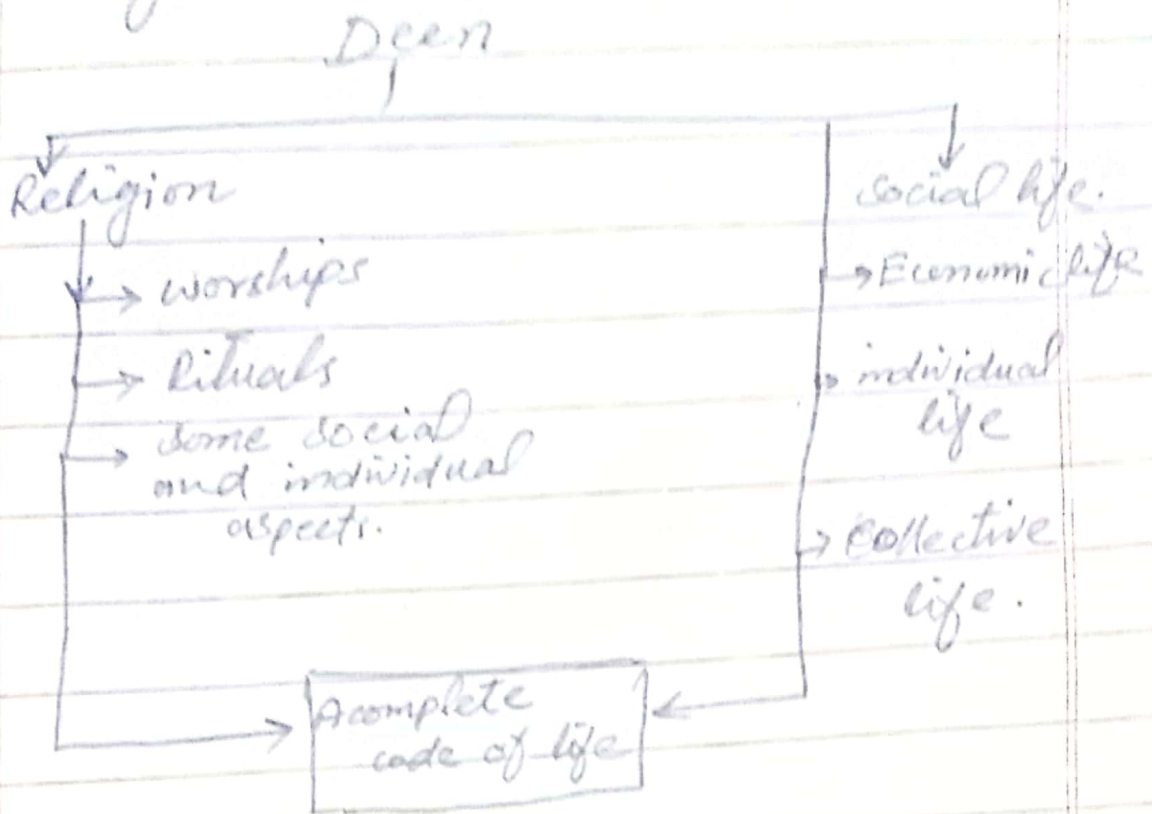 Deen
Religion
worships
Rituals
some social
and individual
aspects.
social life.
Economic life
individual
life
Collective
life.
A complete
code of life